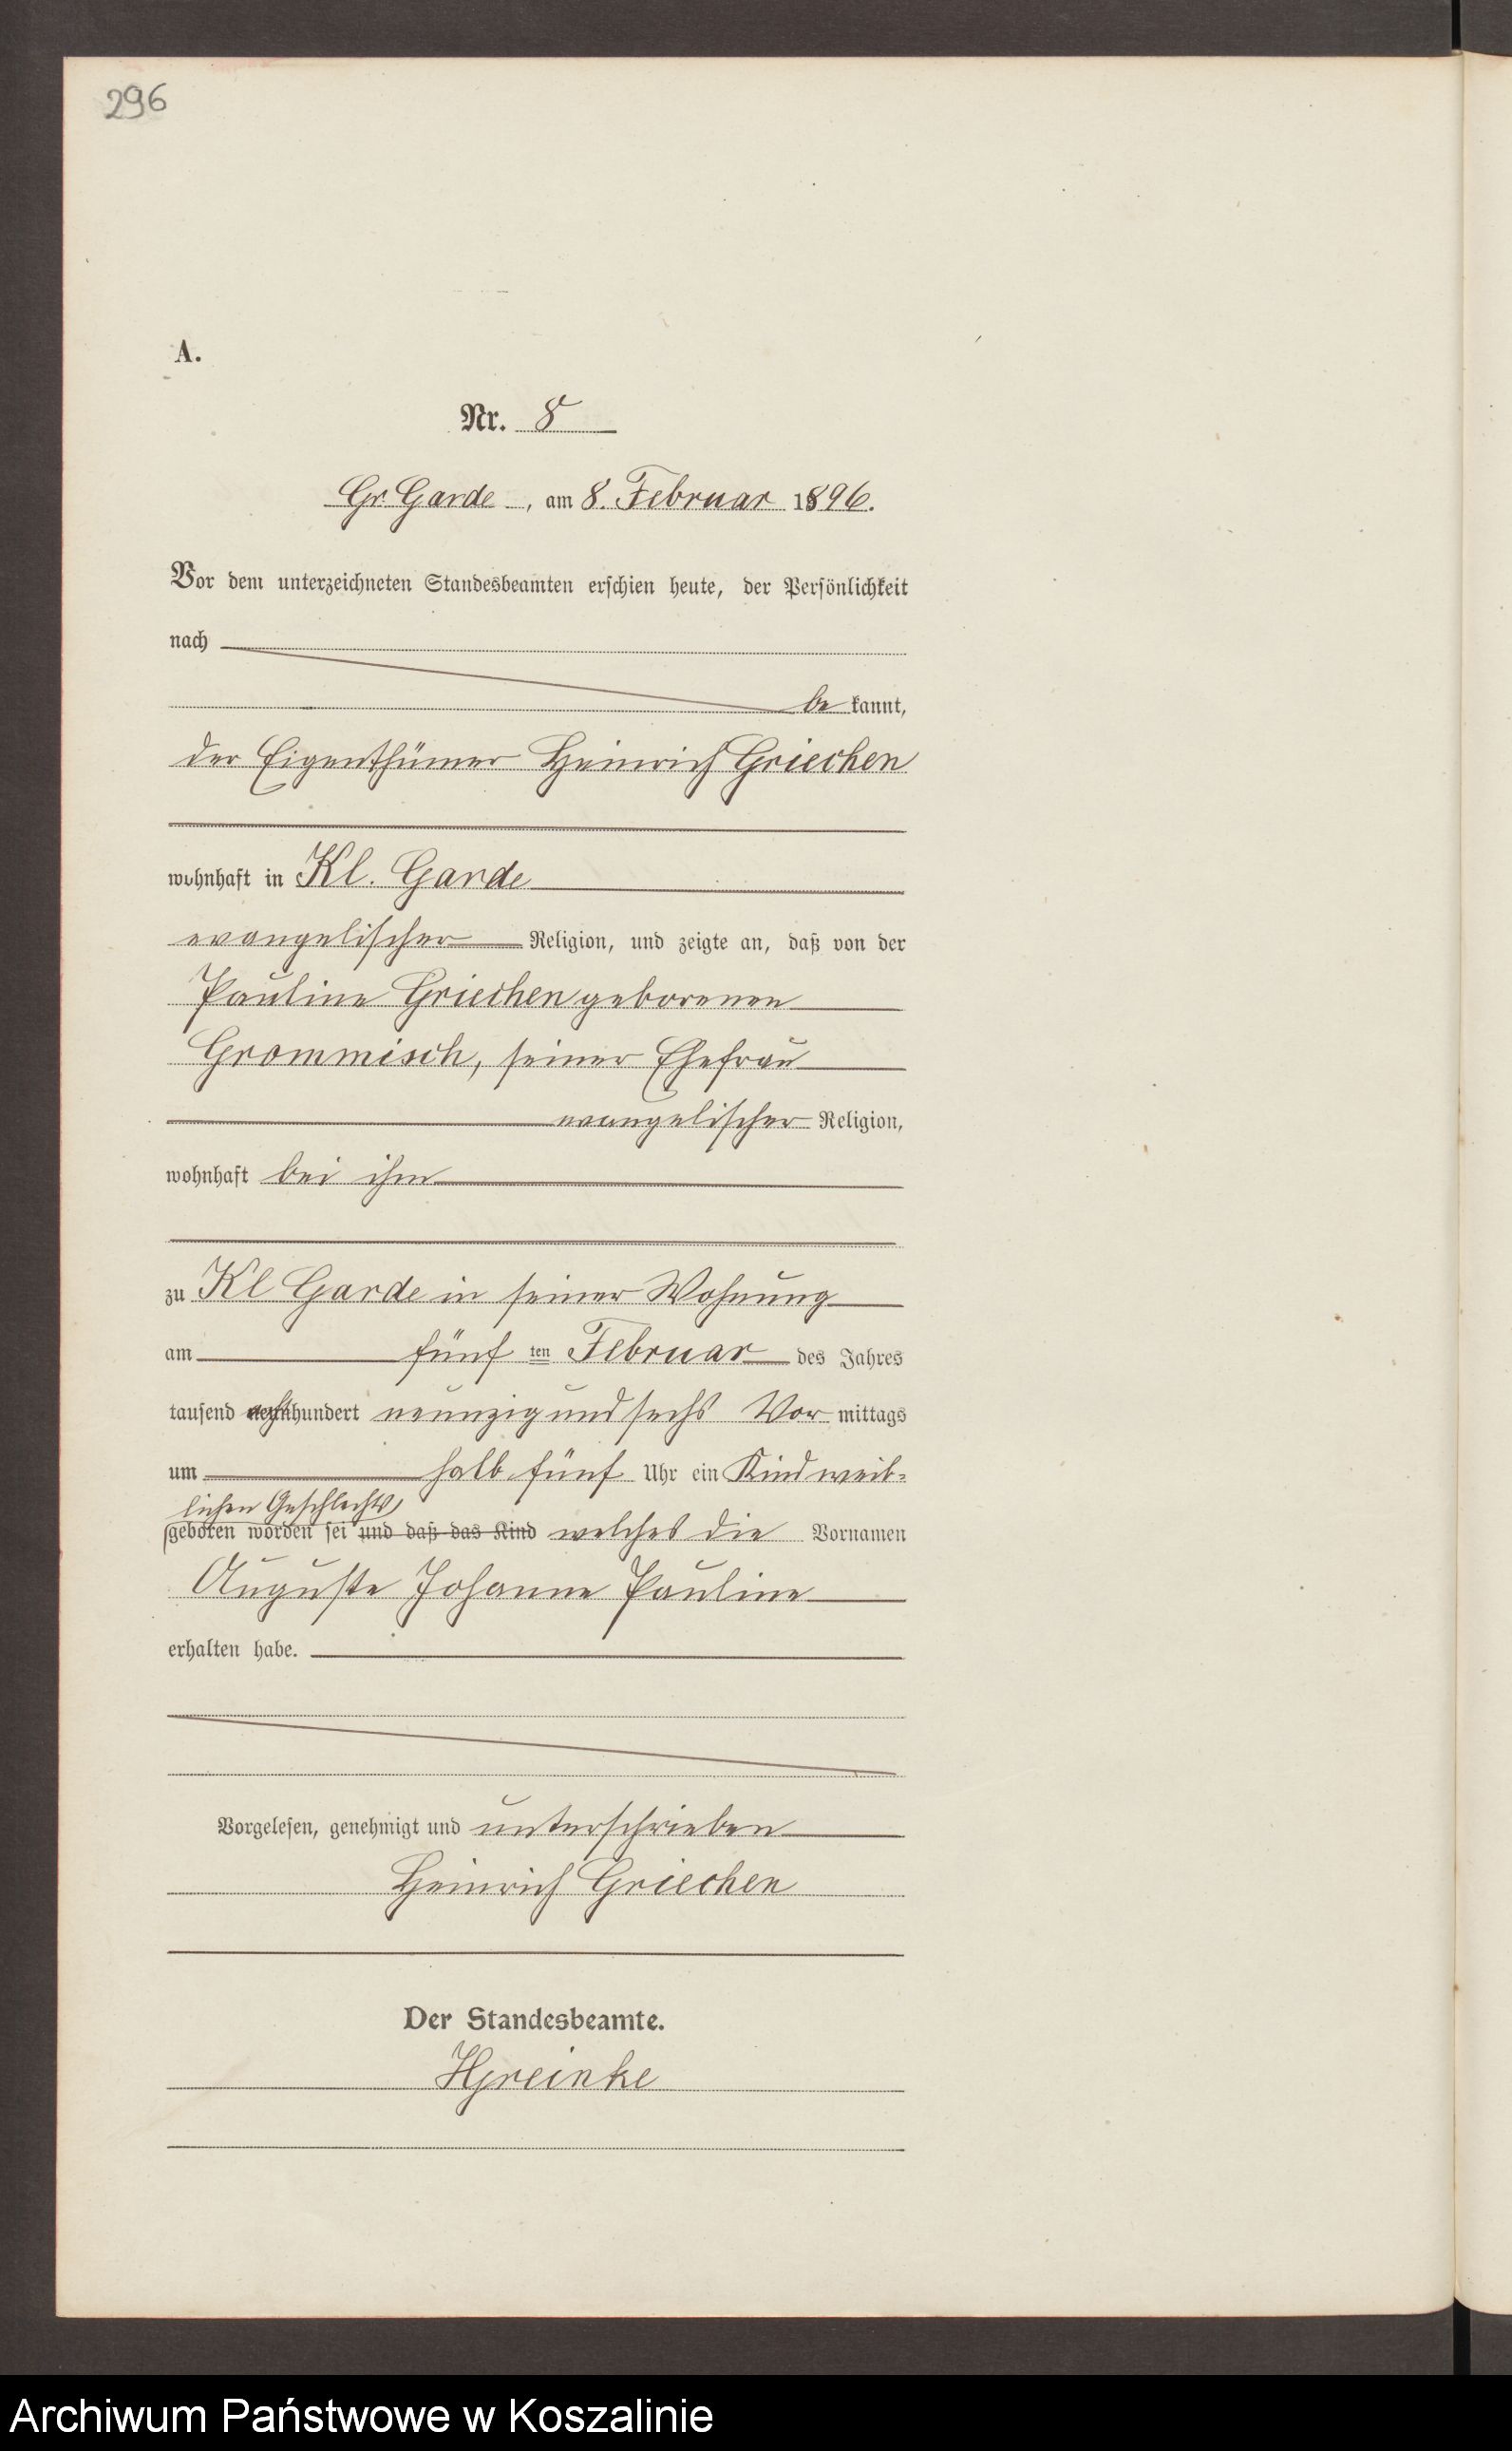 296
A.
Nr. 8
Gr. Garde, am 8. Februar 1896.
Vor dem unterzeichneten Standesbeamten erschien heute, der Persönlichkeit
nach
be kannt,
der Eigenthümer Heinrich Griechen
wohnhaft in Kl. Garde
evangelischer Religion, und zeigte an, daß von der
Pauline Griechen geborenen
Grommisch, seiner Ehefrau
evangelischer Religion,
wohnhaft bei ihm
zu Kl Garde in seiner Wohnung
am fünf ten Februar des Jahres
tausend achthundert neunzig und sechs Vor mittags
um halb fünf Uhr ein Kind weib-
lichen Geschlechts
geboren worden sei und daß das Kind welches die Vornamen
Auguste Johanne Pauline
erhalten habe.
Vorgelesen, genehmigt und unterschrieben
Heinrich Griechen
Der Standesbeamte.
HGreinke
Archiwum Państwowe w Koszalinie